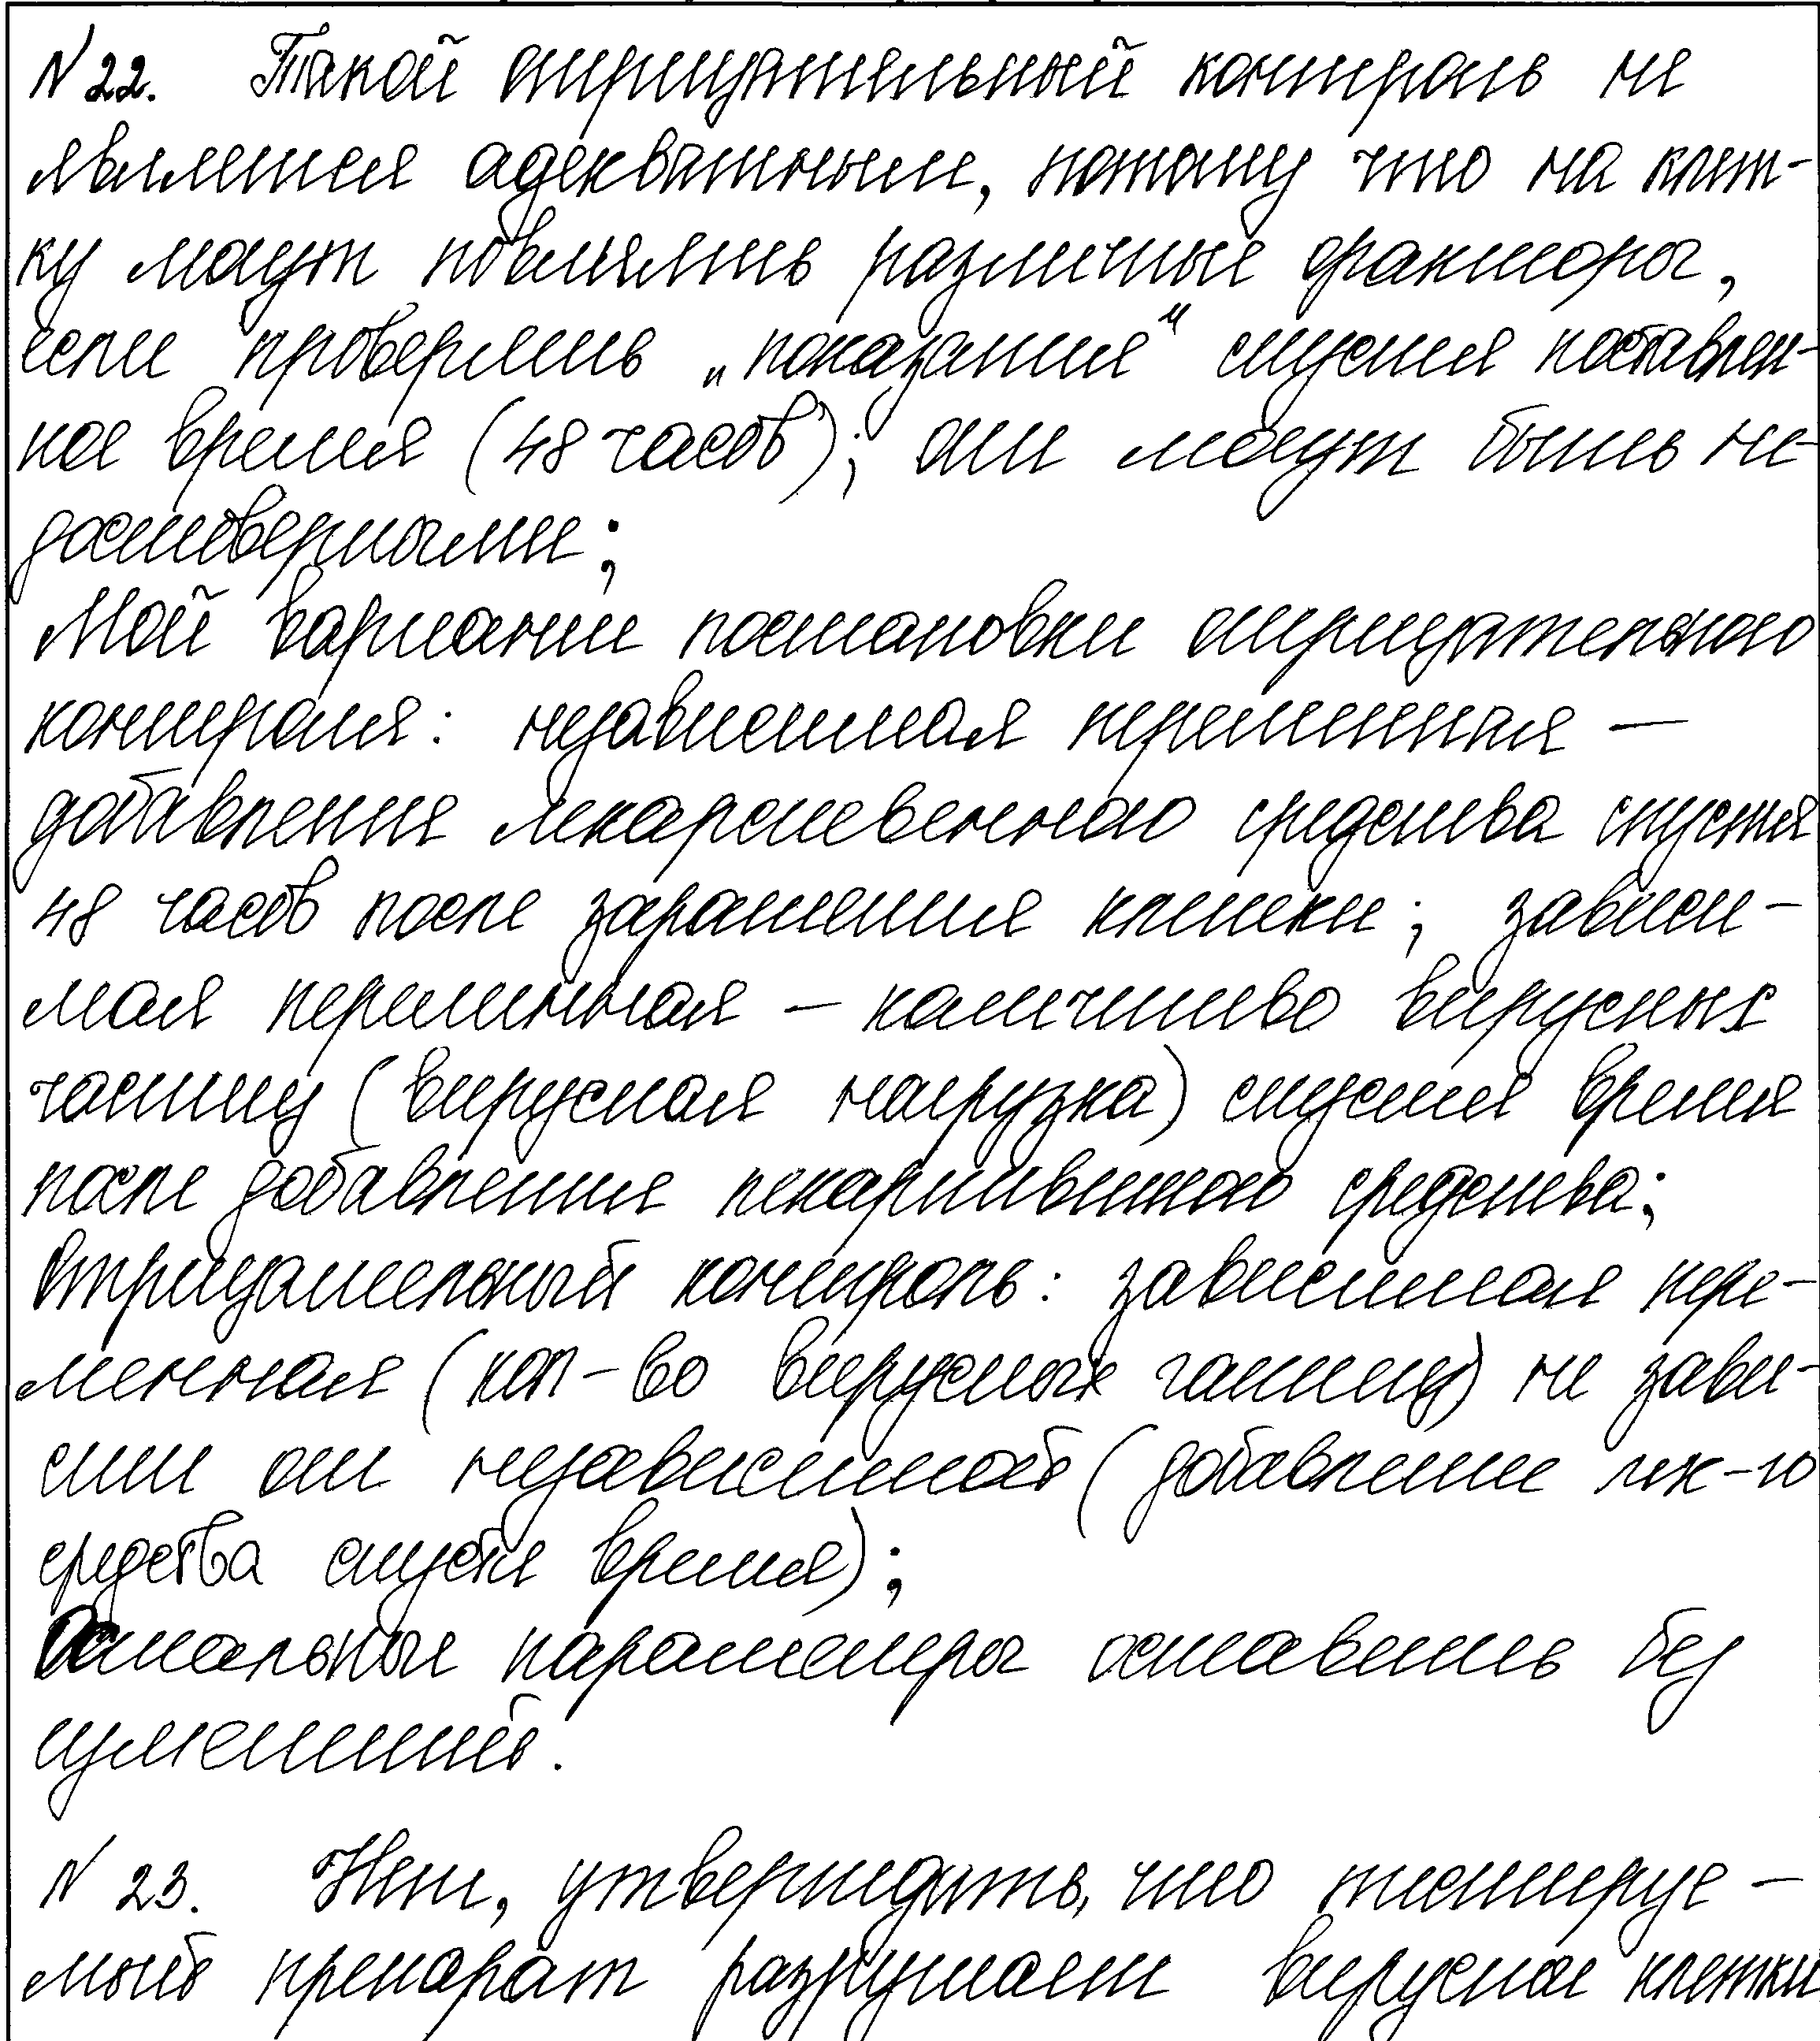 N 22. Такой отрицательный контроль не
является адекватным, потому что на клет-
ку могут повлиять различные факторы,
если проверять „показания" спустя поставлен-
ное время (48 часов); они могут быть не-
достоверными;
Мой вариант постановки отрицательного
контроля: независимая переменная —
добавление лекарственного средства спустя
48 часов после заражения клетки; зависи-
мая переменная – количество вирусных
частиц (вирусная нагрузка) спустя время
после добавления лекарственного средства;
Отрицательный контроль: зависимая пере-
менная (кол-во вирусных частиц) не зави-
сит от независимой (добавление лек-го
средства спустя время);
Остальные параметры оставить без
изменений.
N 23. Нет, утверждать, что тестируе-
мый препарат разрушает вирусные клетки